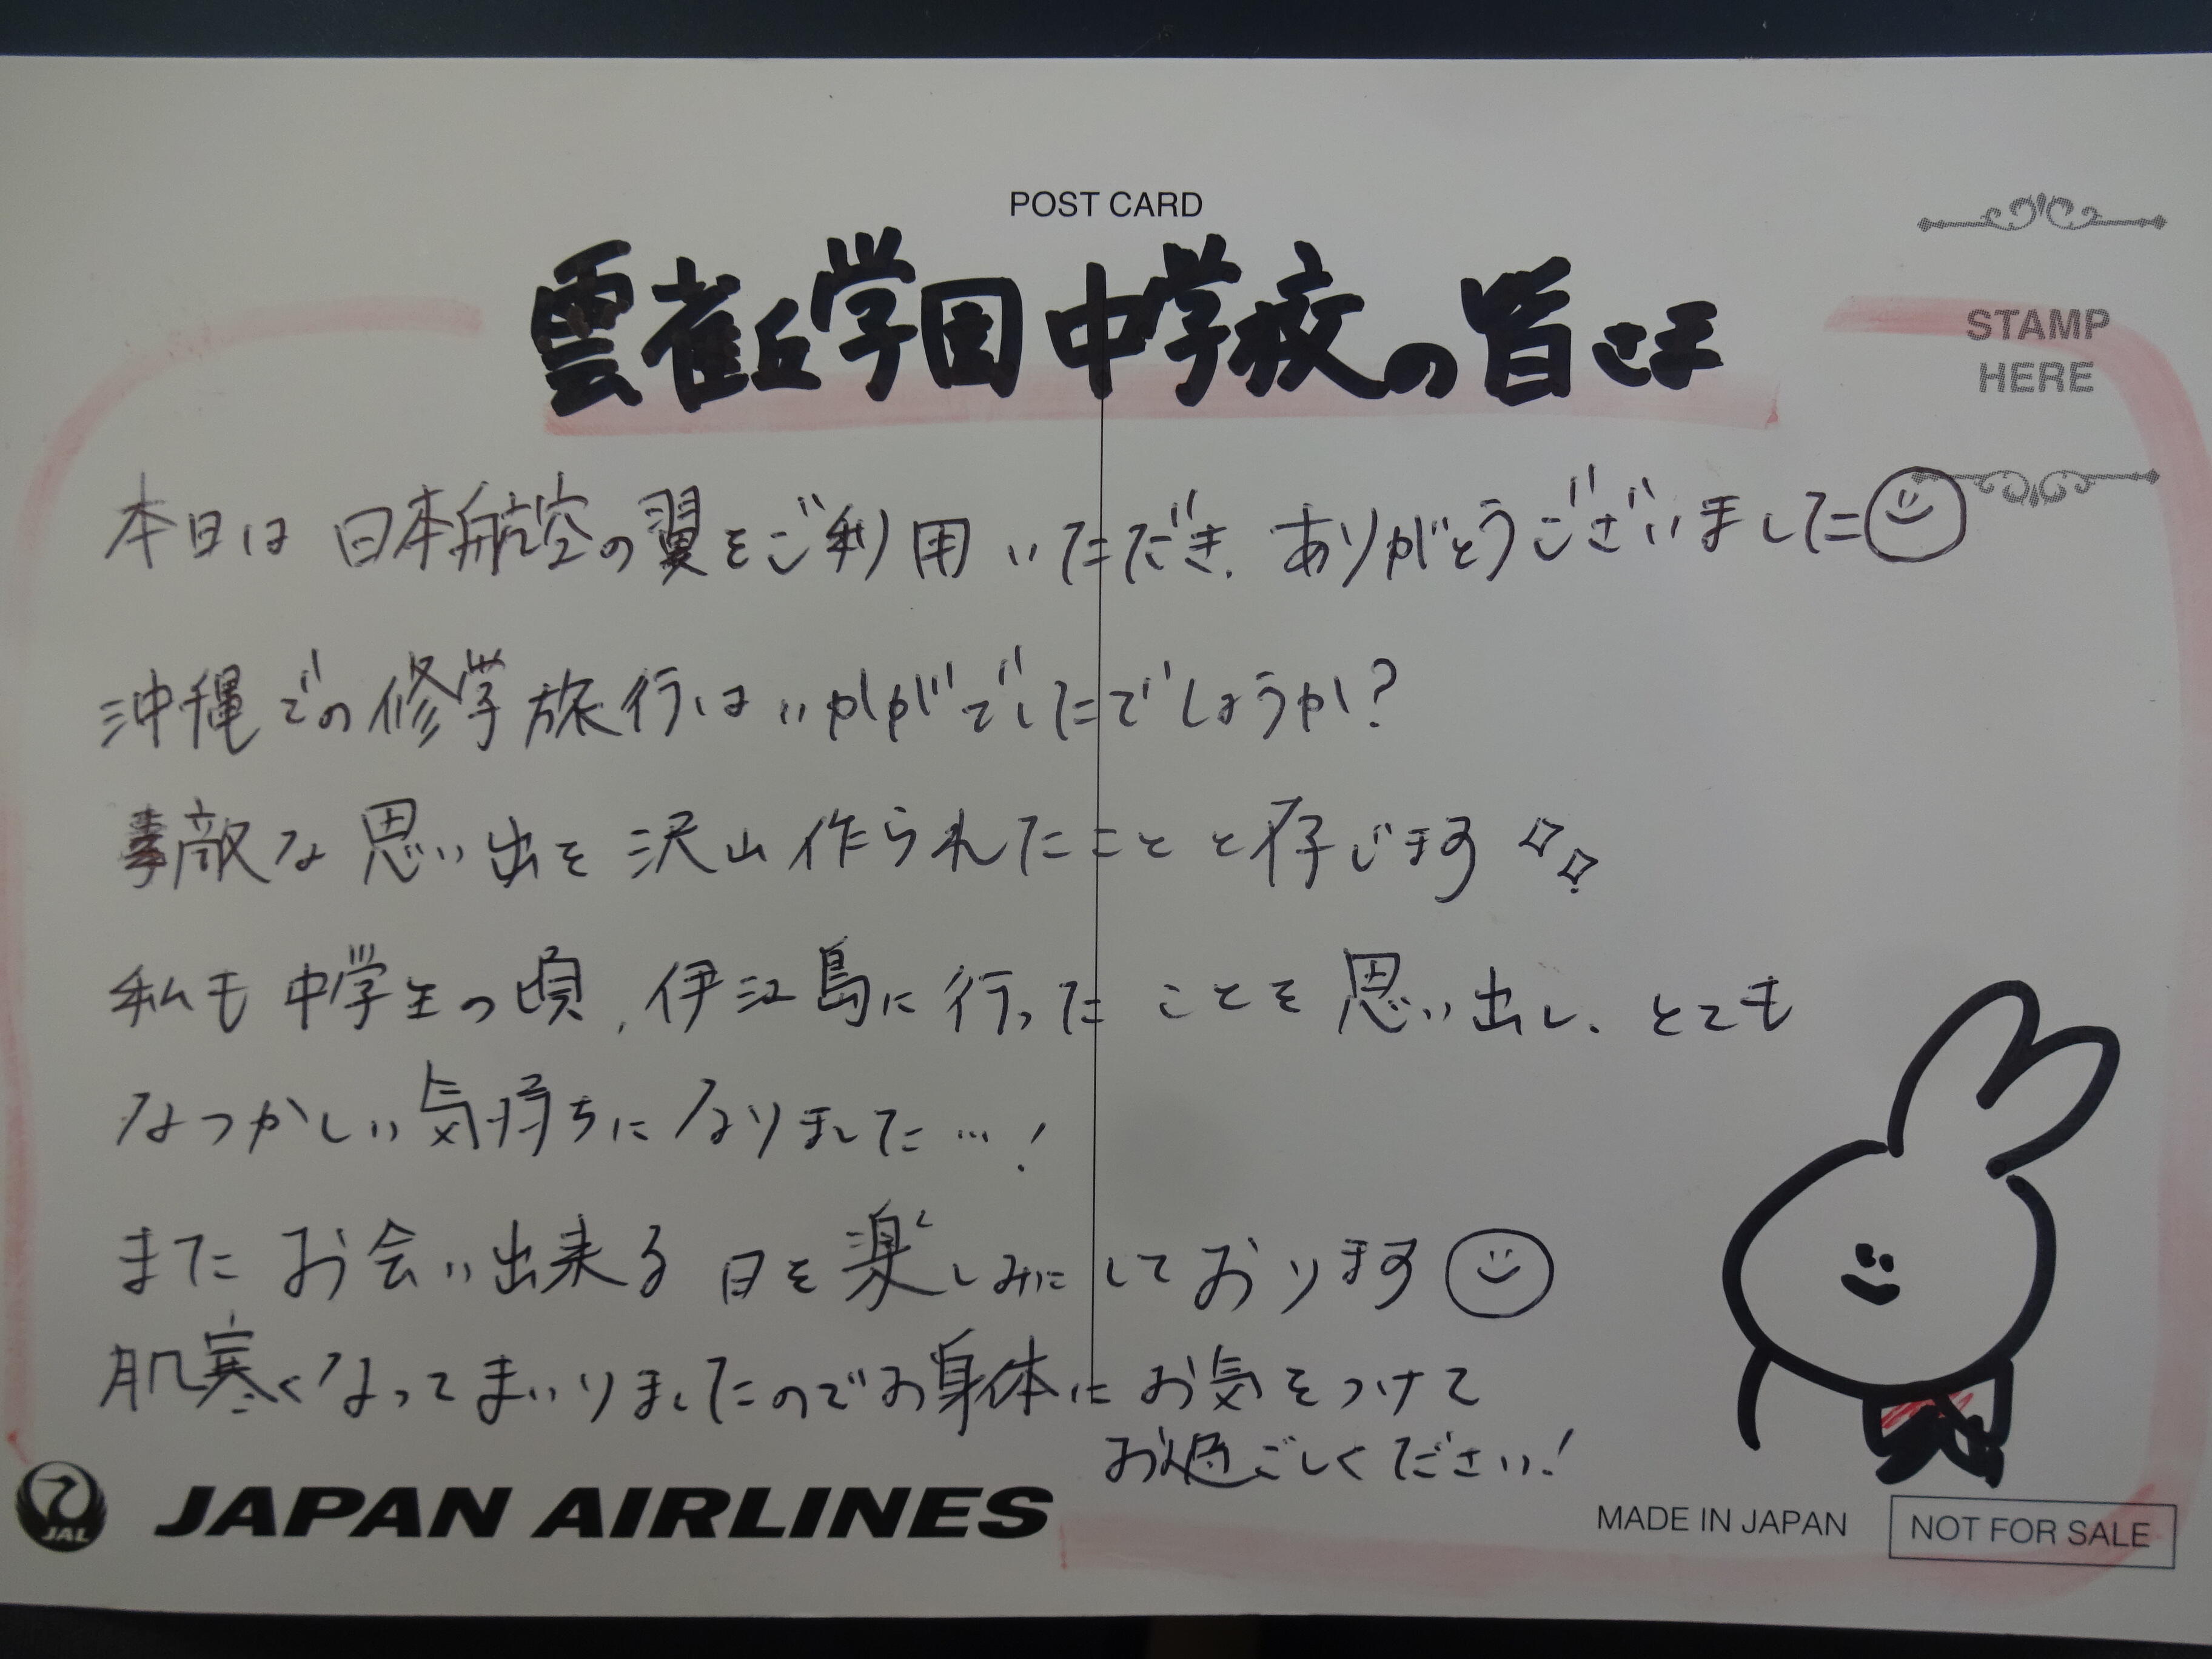 POST CARD
STAMP
HERE
雲雀丘学園中学校の皆さま
本日は日本航空の翼をご利用いただき、ありがとうございました
沖縄での修学旅行はいかがでしたでしょうか?
素敵な思い出を沢山作られたことと存じます
私も中学生の頃、伊江島に行ったことを思い出し、とても
なつかしい気持ちになりました…!
またお会い出来る日を楽しみにしております
肌寒くなってまいりましたのでお身体にお気をつけて
お過ごしください!
JAL
JAPAN AIRLINES
MADE IN JAPAN
NOT FOR SALE